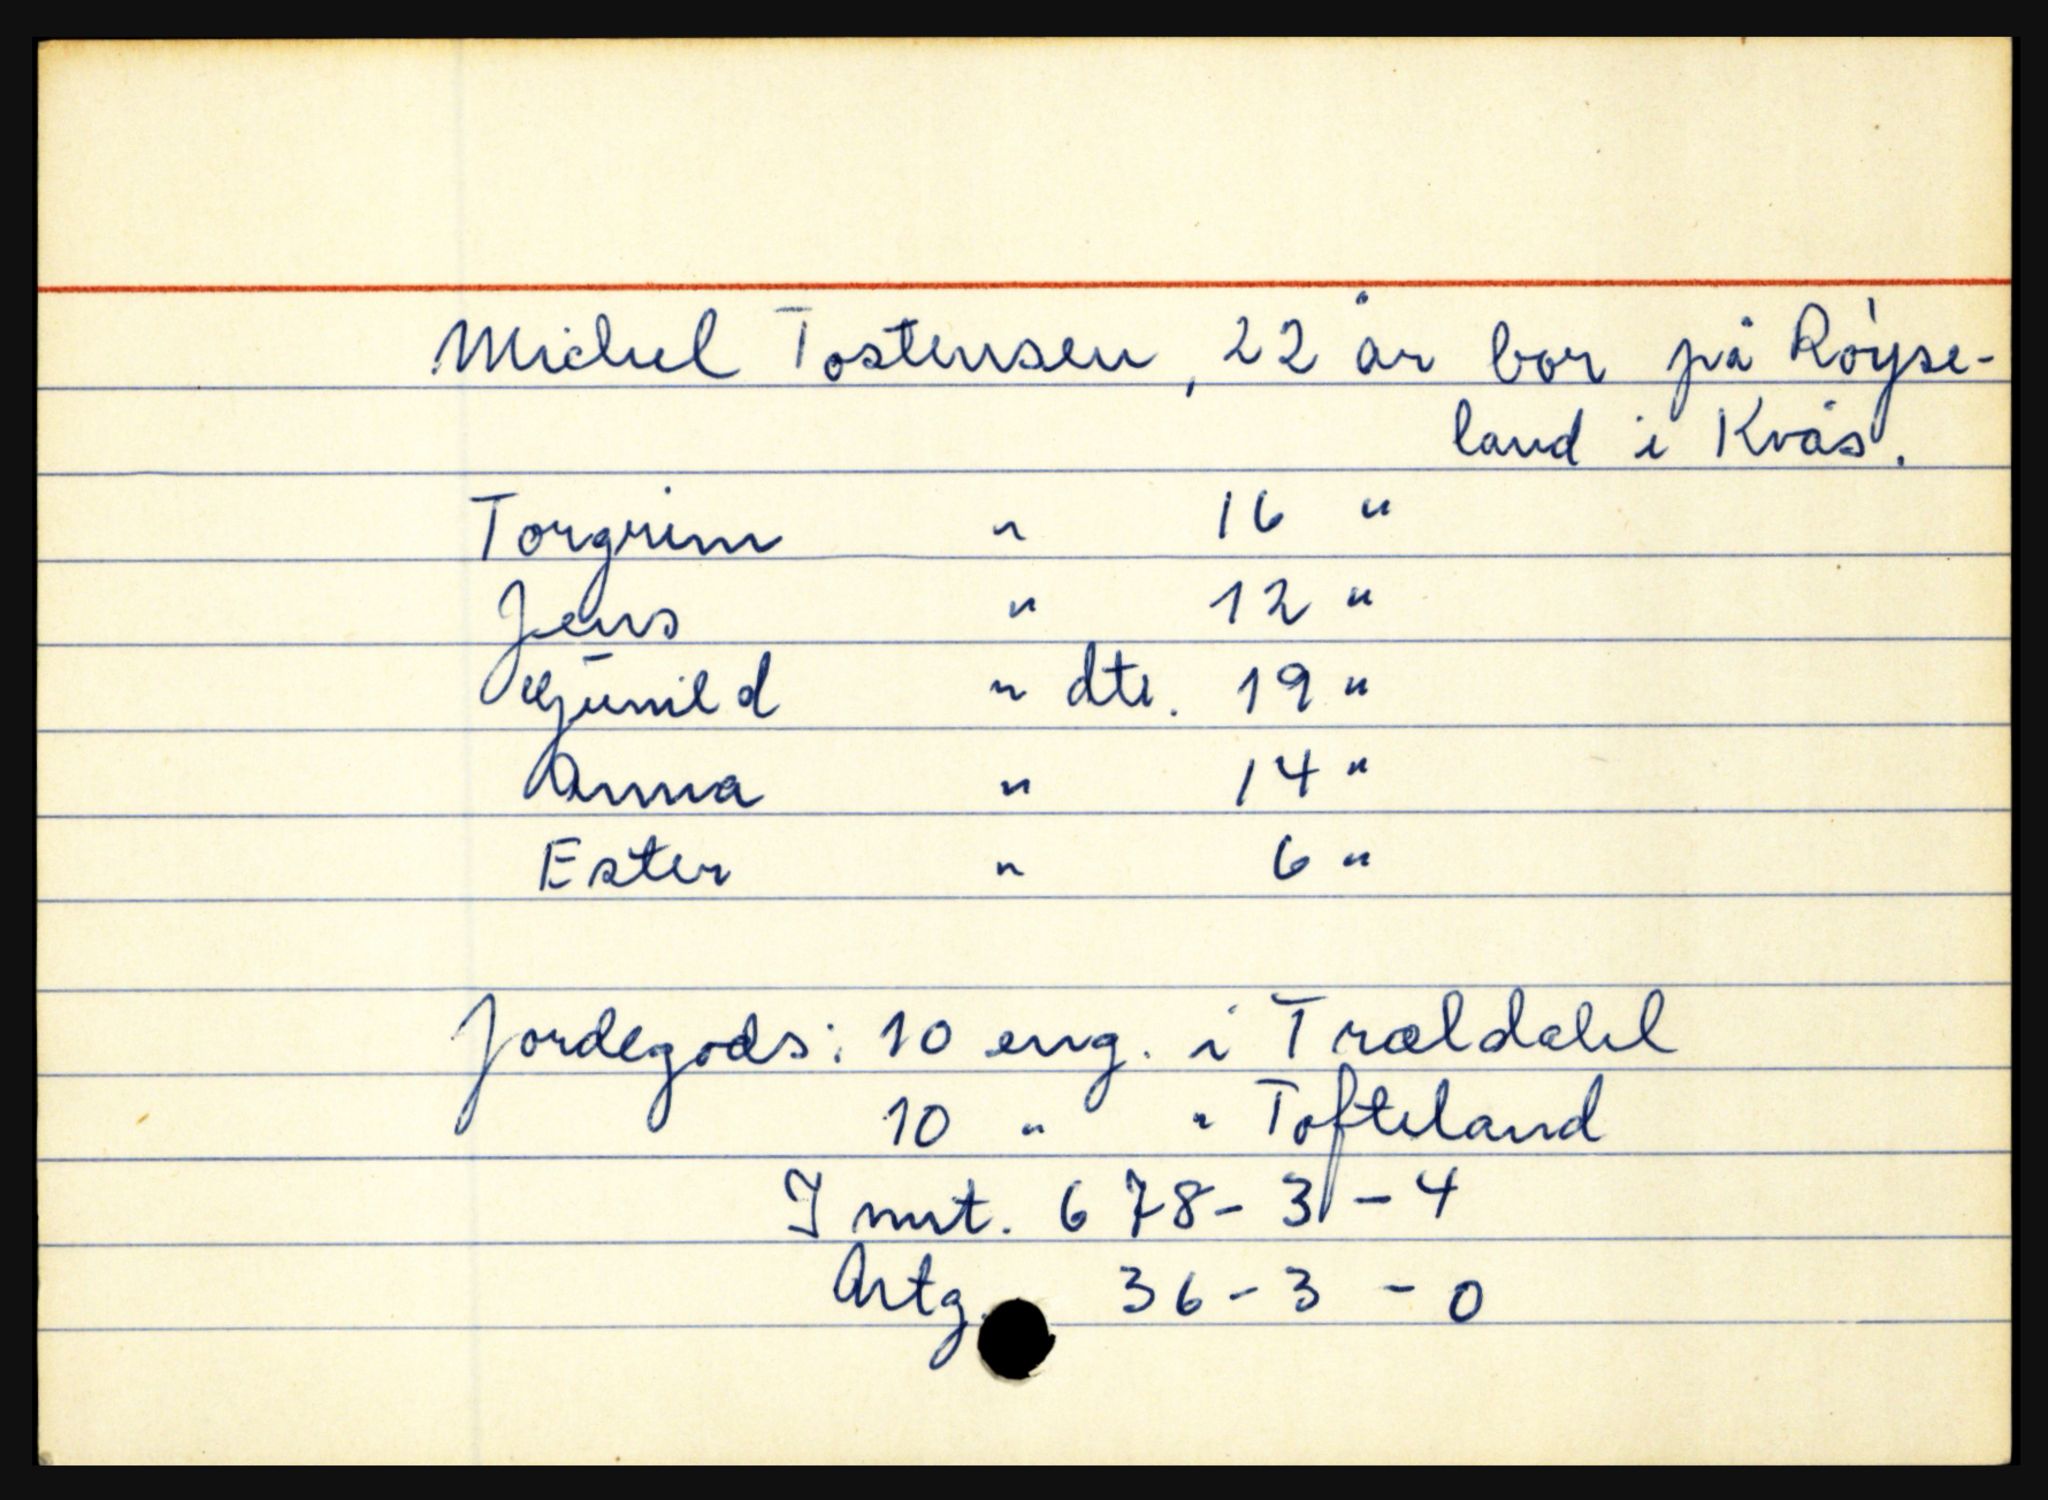 Michel Tostensen, 22 år bor på Röyse-
land i Kvås.
Torgrim " 16 "
Jens " 12 "
Gunild " dtr. 19 "
Anna " 14 "
Ester " 6 "
Jordegods: 10 eng. i Trældahl
10 " " Tofteland
I mst. 678-3-4
Artg. 36-3-0